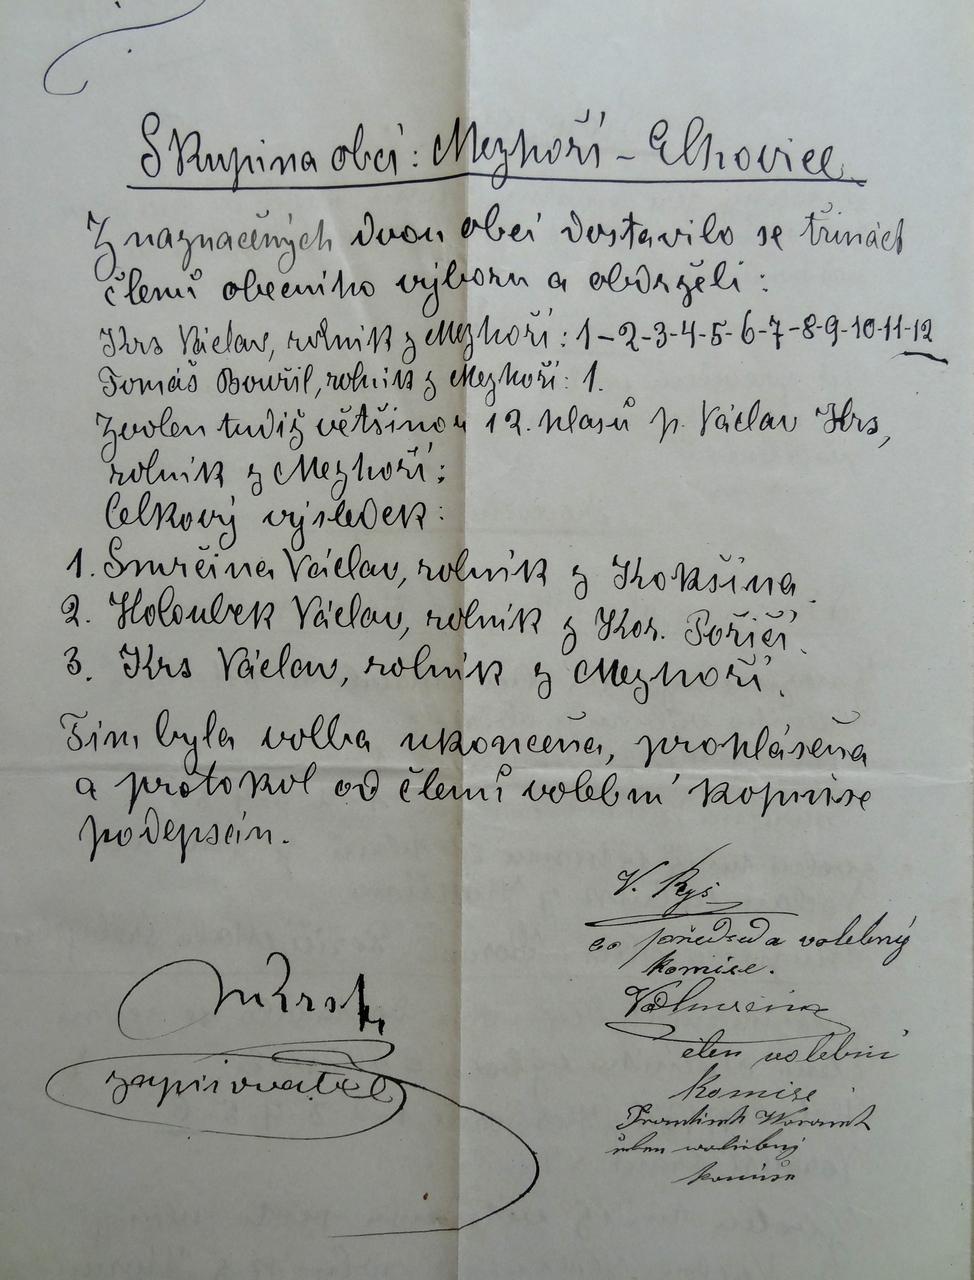 Skupina obcí: Mezhoří - Elhovice.
Z naznačených dvou obcí dostavilo se třináct
členů obecního výboru a obdrželi:
Krs Václav, rolník z Mezhoří: 1-2-3-4-5-6-7-8-9-10-11-12
Tomáš Bouřil, rolník z Mezhoří: 1.
Zvolen tudiž většinou 12. hlasů p. Václav Krs,
rolník z Mezhoří:
Celkový výsledek:
1. Smrčina Václav, rolník z Kokšína.
2. Holoubek Václav, rolník z Kor. Poříčí.
3. Krs Václav, rolník z Mezhoří.
Tim byla volba ukončena, prohlášena
a protokol od členů volební komise
podepsán.
V. Ryš
co předseda volebný
komise.
člen volební
komise
František
člen volebný
komise
zapisovatel